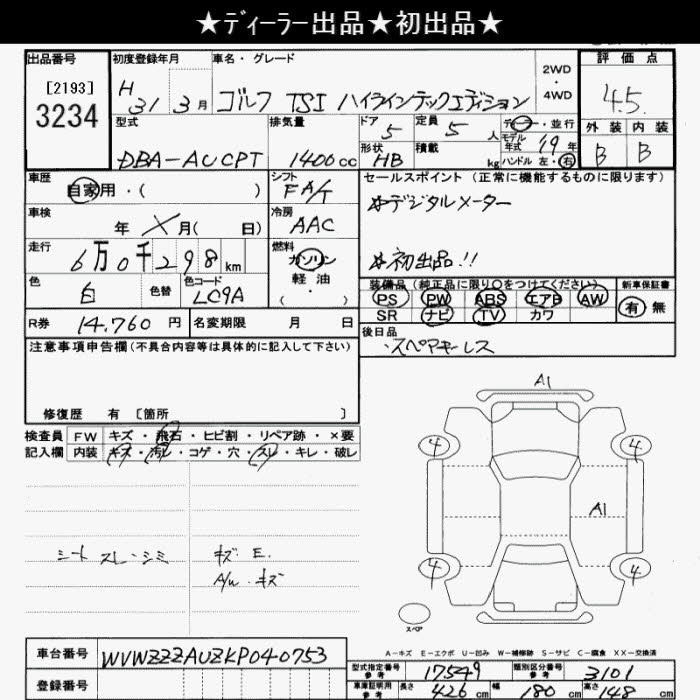 ★ディーラー出品★初出品★
出品番号
[2193]
3234
初度登録年月
H 31 3月
車名・グレード
ゴルフ TSI ハイラインテックエディション
2WD
・
4WD
評価点
4.5
外装 内装
B B
型式
DBA-AUCPT
排気量
1400cc
ドア
5
形状
HB
定員
5人
積載
kg
ディーラー・並行
モデル年式 19年
ハンドル 左・右
車歴
自家用・( )
シフト
FA/T
車検
年 X月( 日)
冷房
AAC
走行
6万0千298km
燃料
ガソリン
軽油
( ・ )
色
白
色替
色コード
LC9A
R券 14.760円
名変期限 月 日
セールスポイント (正常に機能するものに限ります)
☆デジタルメーター
☆初出品!!
装備品 (純正品に限り○をつけてください)
PS PW ABS エアB AW
SR ナビ TV カワ
新車保証書
有 無
後日品
・スペアキーレス
注意事項申告欄(不具合内容等は具体的に記入して下さい)
修復歴 有 〔箇所 〕
検査員記入欄
FW キズ・飛石・ヒビ割・リペア跡・×要
内装 キズ・汚レ・コゲ・穴・スレ・キレ・破レ
シート スレ・シミ
キズ E.
A/W キズ
A1
4 4
A1
4 4
スペア
A-キズ E-エクボ U-凹み W-補修跡 S-サビ C-腐食 XX-交換済
車台番号 WVWZZZAUZKP040753
登録番号
型式指定番号 参考 17549
類別区分番号 参考 3101
車庫証明用 参考 長さ 426cm 幅 180cm 高さ 148cm